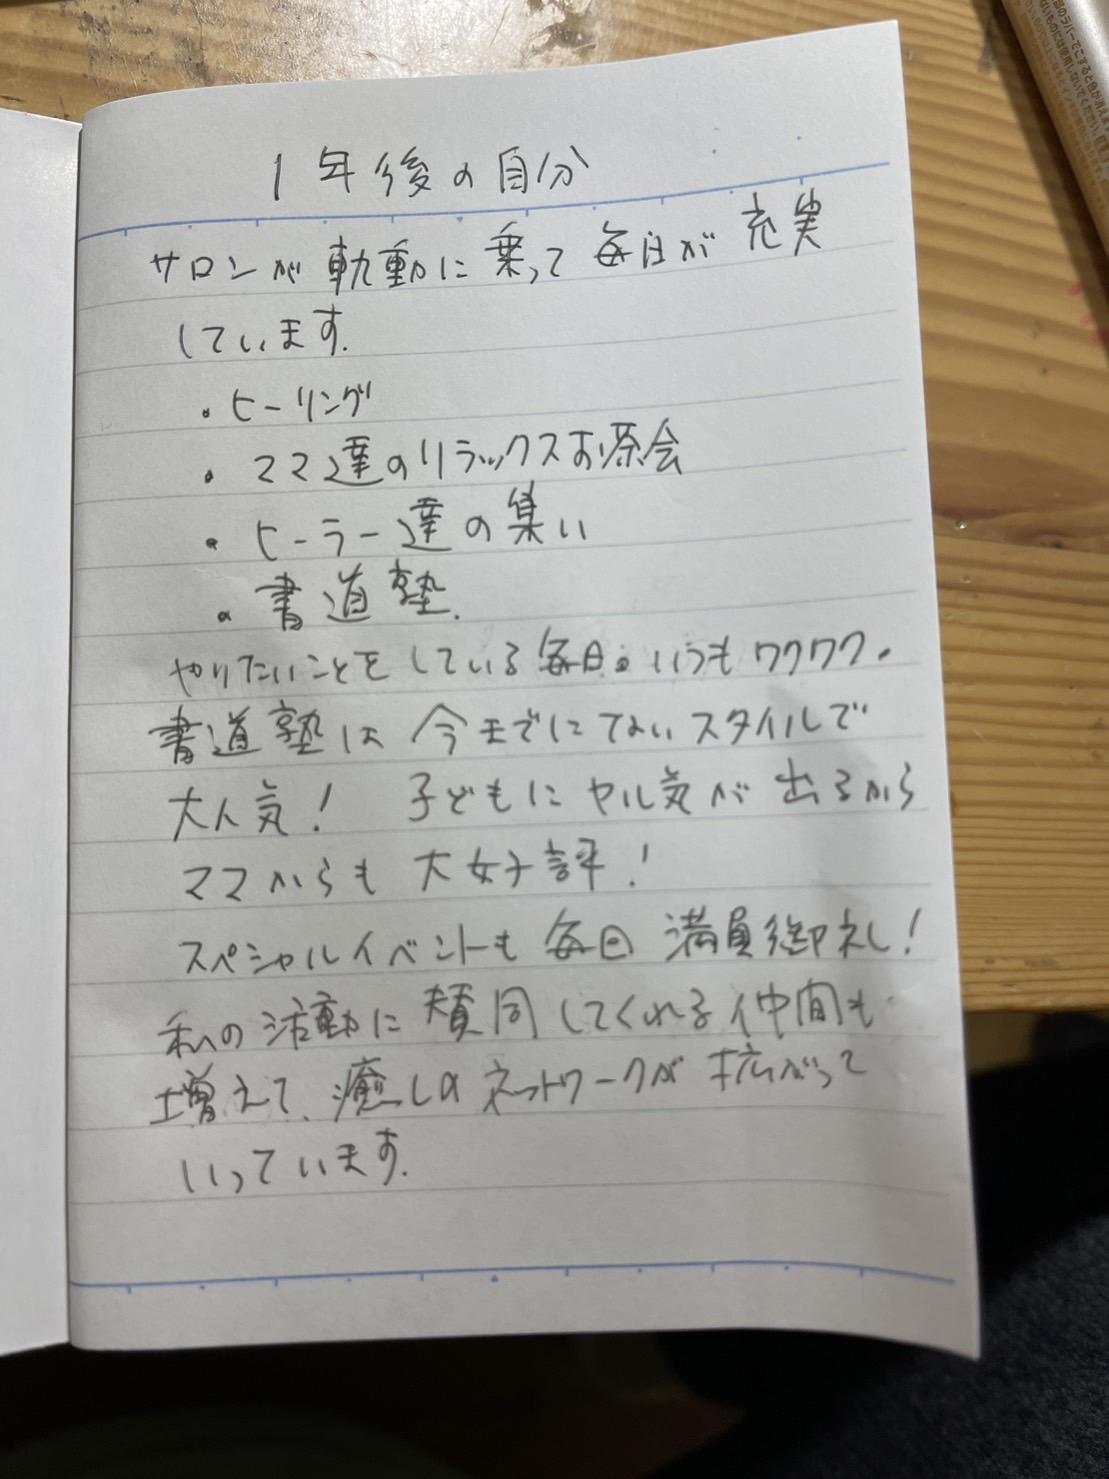 1年後の自分
サロンが軌動に乗って毎日が充実
しています.
・ヒーリング
・ママ達のリラックスお茶会
・ヒーラー達の集い
・書道塾.
やりたいことをしている毎日。いつもワクワク。
書道塾は今までにないスタイルで
大人気! 子どもにヤル気が出るから
ママからも大好評!
スペシャルイベントも毎回満員御礼!
私の活動に賛同してくれる仲間も
増えて、癒しのネットワークが拡がって
いっています.